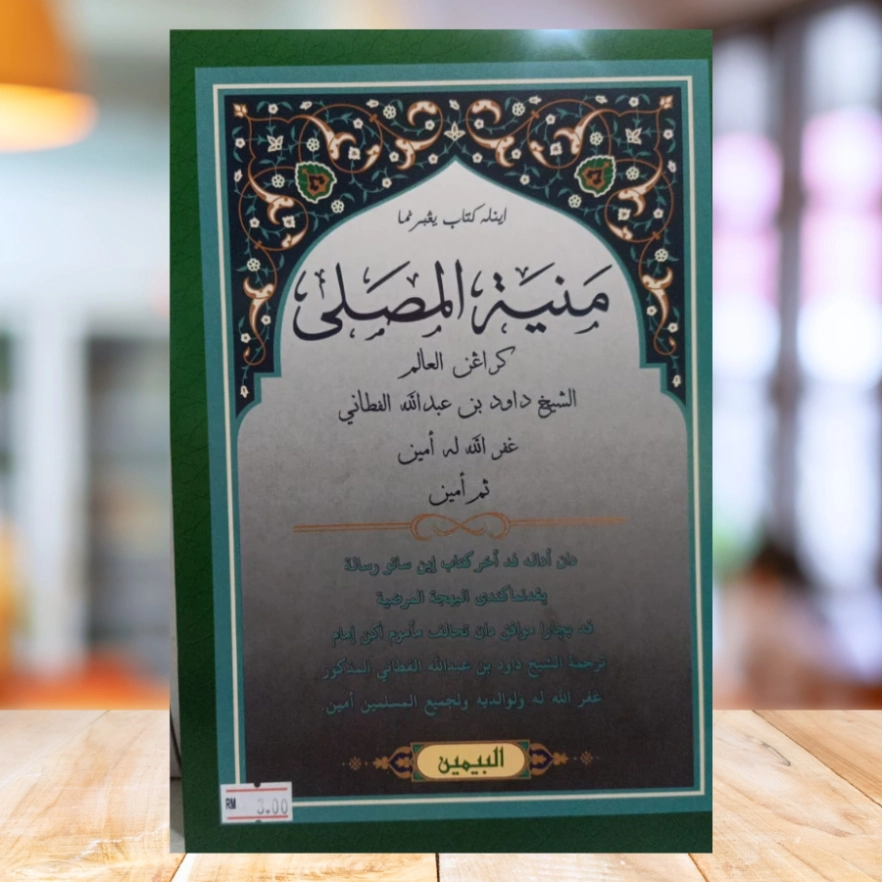 اينله كتاب يڠبرنما
مَنيَة المصَلى
كراڠن العالم
الشيخ داود بن عبدالله الفطاني
غفر الله له أمين
ثم أمين
دان أداله قد أخر كتاب إين ساتو رسالة
يڠدنماكندى البهجة المرضية
قد بچارا موافق دان تخالف مأموم أكن إمام
ترجمة الشيخ داود بن عبدالله الفطاني المذكور
غفر الله له ولوالديه ولجميع المسلمين أمين
البيمين
RM 3.00